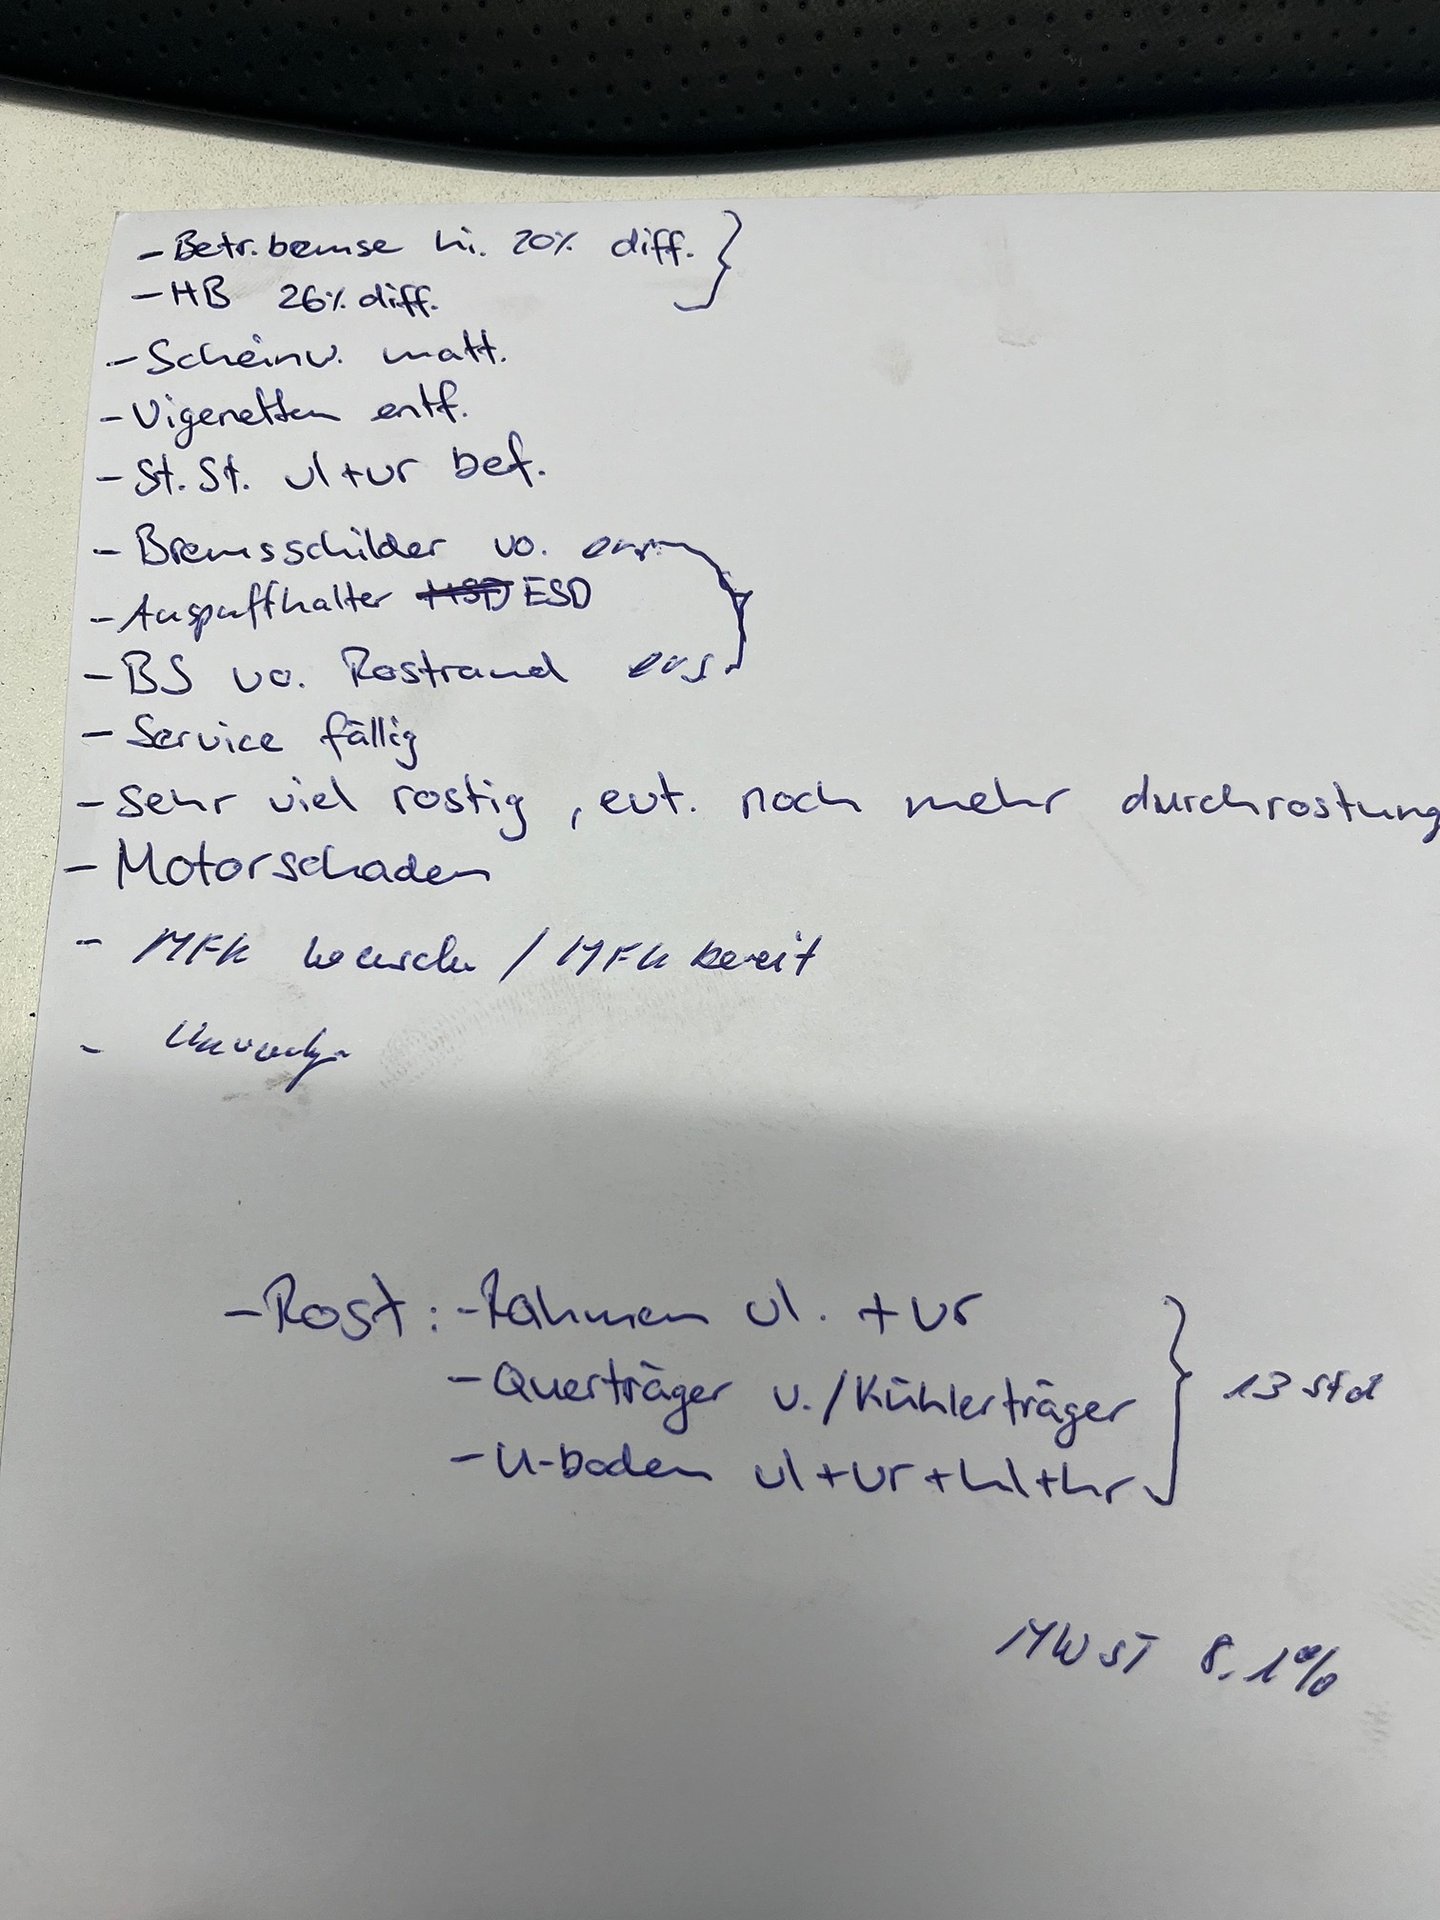 - Betr.bremse hi. 20% diff.
- HB 26% diff.
- Scheinw. matt.
- Vigenetten entf.
- St.St. vl+vr def.
- Bremsschilder vo. ers.
- Auspuffhalter ESD
- BS vo. Rostrand ers.
- Service fällig
- sehr viel rostig, evt. noch mehr durchrostung
- Motorschaden
- MFK wäsche / MFK bereit
-
- Rost: - Rahmen vl. + vr
- Querträger v./Kühlerträger
- U-boden vl+vr+hl+hr
13 std
MWST 8.1%